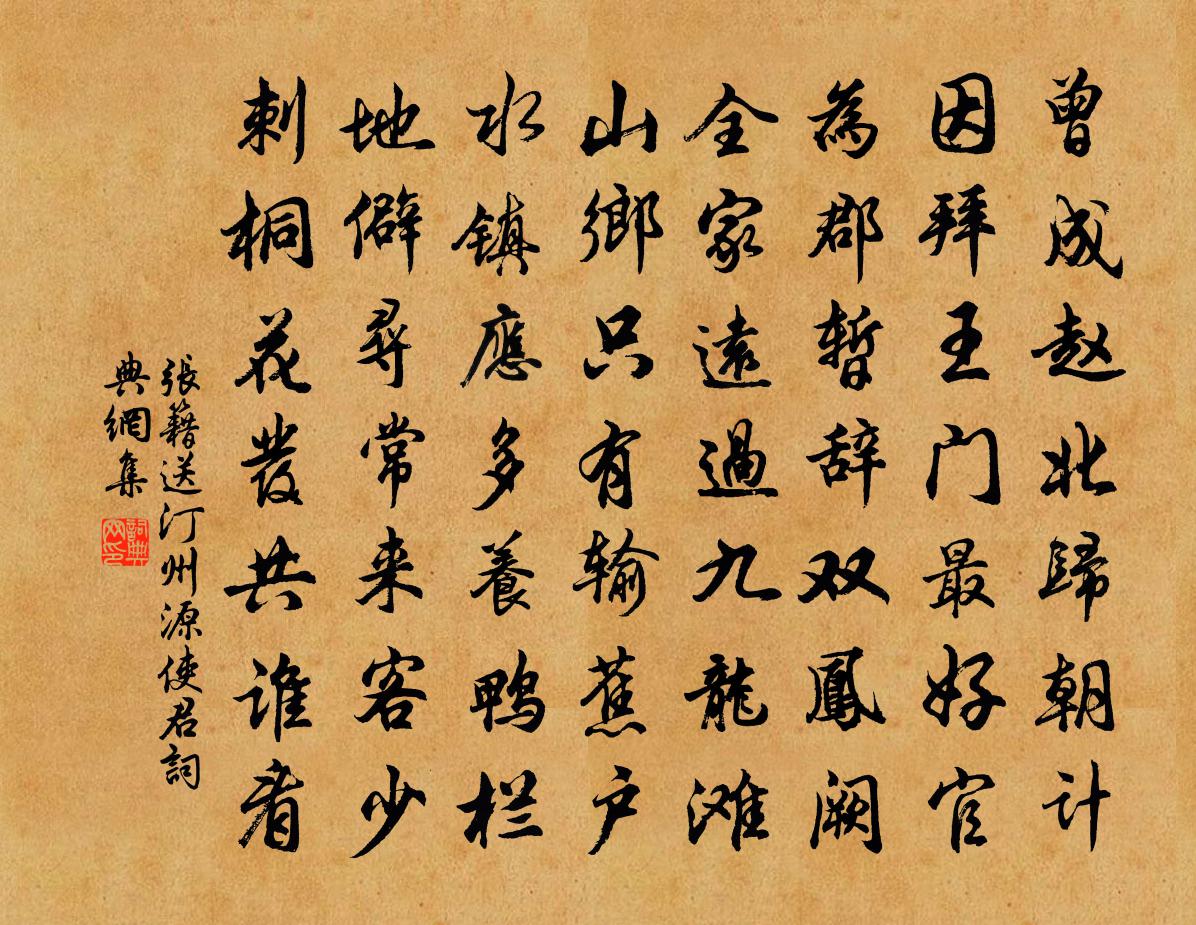 曾成赵北歸朝计
因拜王门最好官
為郡暫辞双鳳阙
全家遠過九龍滩
山鄉只有输蕉户
水镇應多養鴨栏
地僻尋常来客少
刺桐花發共谁看
張籍送汀州源使君詞
典網集
詞典网印